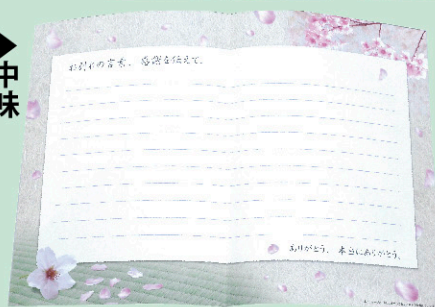 中味
お別れの言葉、感謝を伝えて。
ありがとう、本当にありがとう。